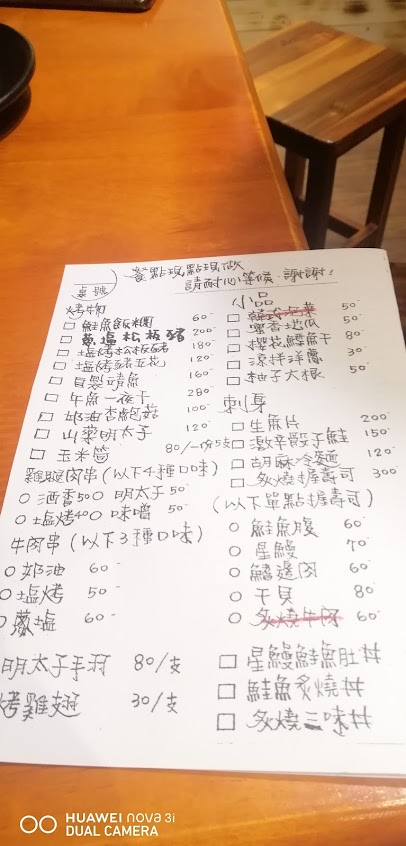 桌號
餐點現點現做
請耐心等候 謝謝!
烤物
鮭魚飯糰 60
蔥塩松板豬 200
塩烤松板豬 180
塩烤豬五花 120
自製鯖魚 160
午魚一夜干 280
奶油杏鮑菇 100
山藥明太子 120
玉米筍 80/一份5支
雞腿肉串(以下4種口味)
酒香50 明太子50
塩烤40 味噌 50
牛肉串(以下3種口味)
奶油 60
塩烤 50
蔥塩 60
明太子手羽 80/支
烤雞翅 30/支
小品
韓式泡菜 50
蜜香地瓜 50
櫻花鱈魚干 80
涼拌洋蔥 30
柚子大根 50
刺身
生魚片 200
激辛骰子鮭 150
胡麻冷麵 120
炙燒握壽司 300
(以下單點握壽司)
鮭魚腹 60
星鰻 70
鰭邊肉 60
干貝 80
炙燒牛肉 60
星鰻鮭魚肚丼
鮭魚炙燒丼
炙燒三味丼
HUAWEI nova 3i
DUAL CAMERA